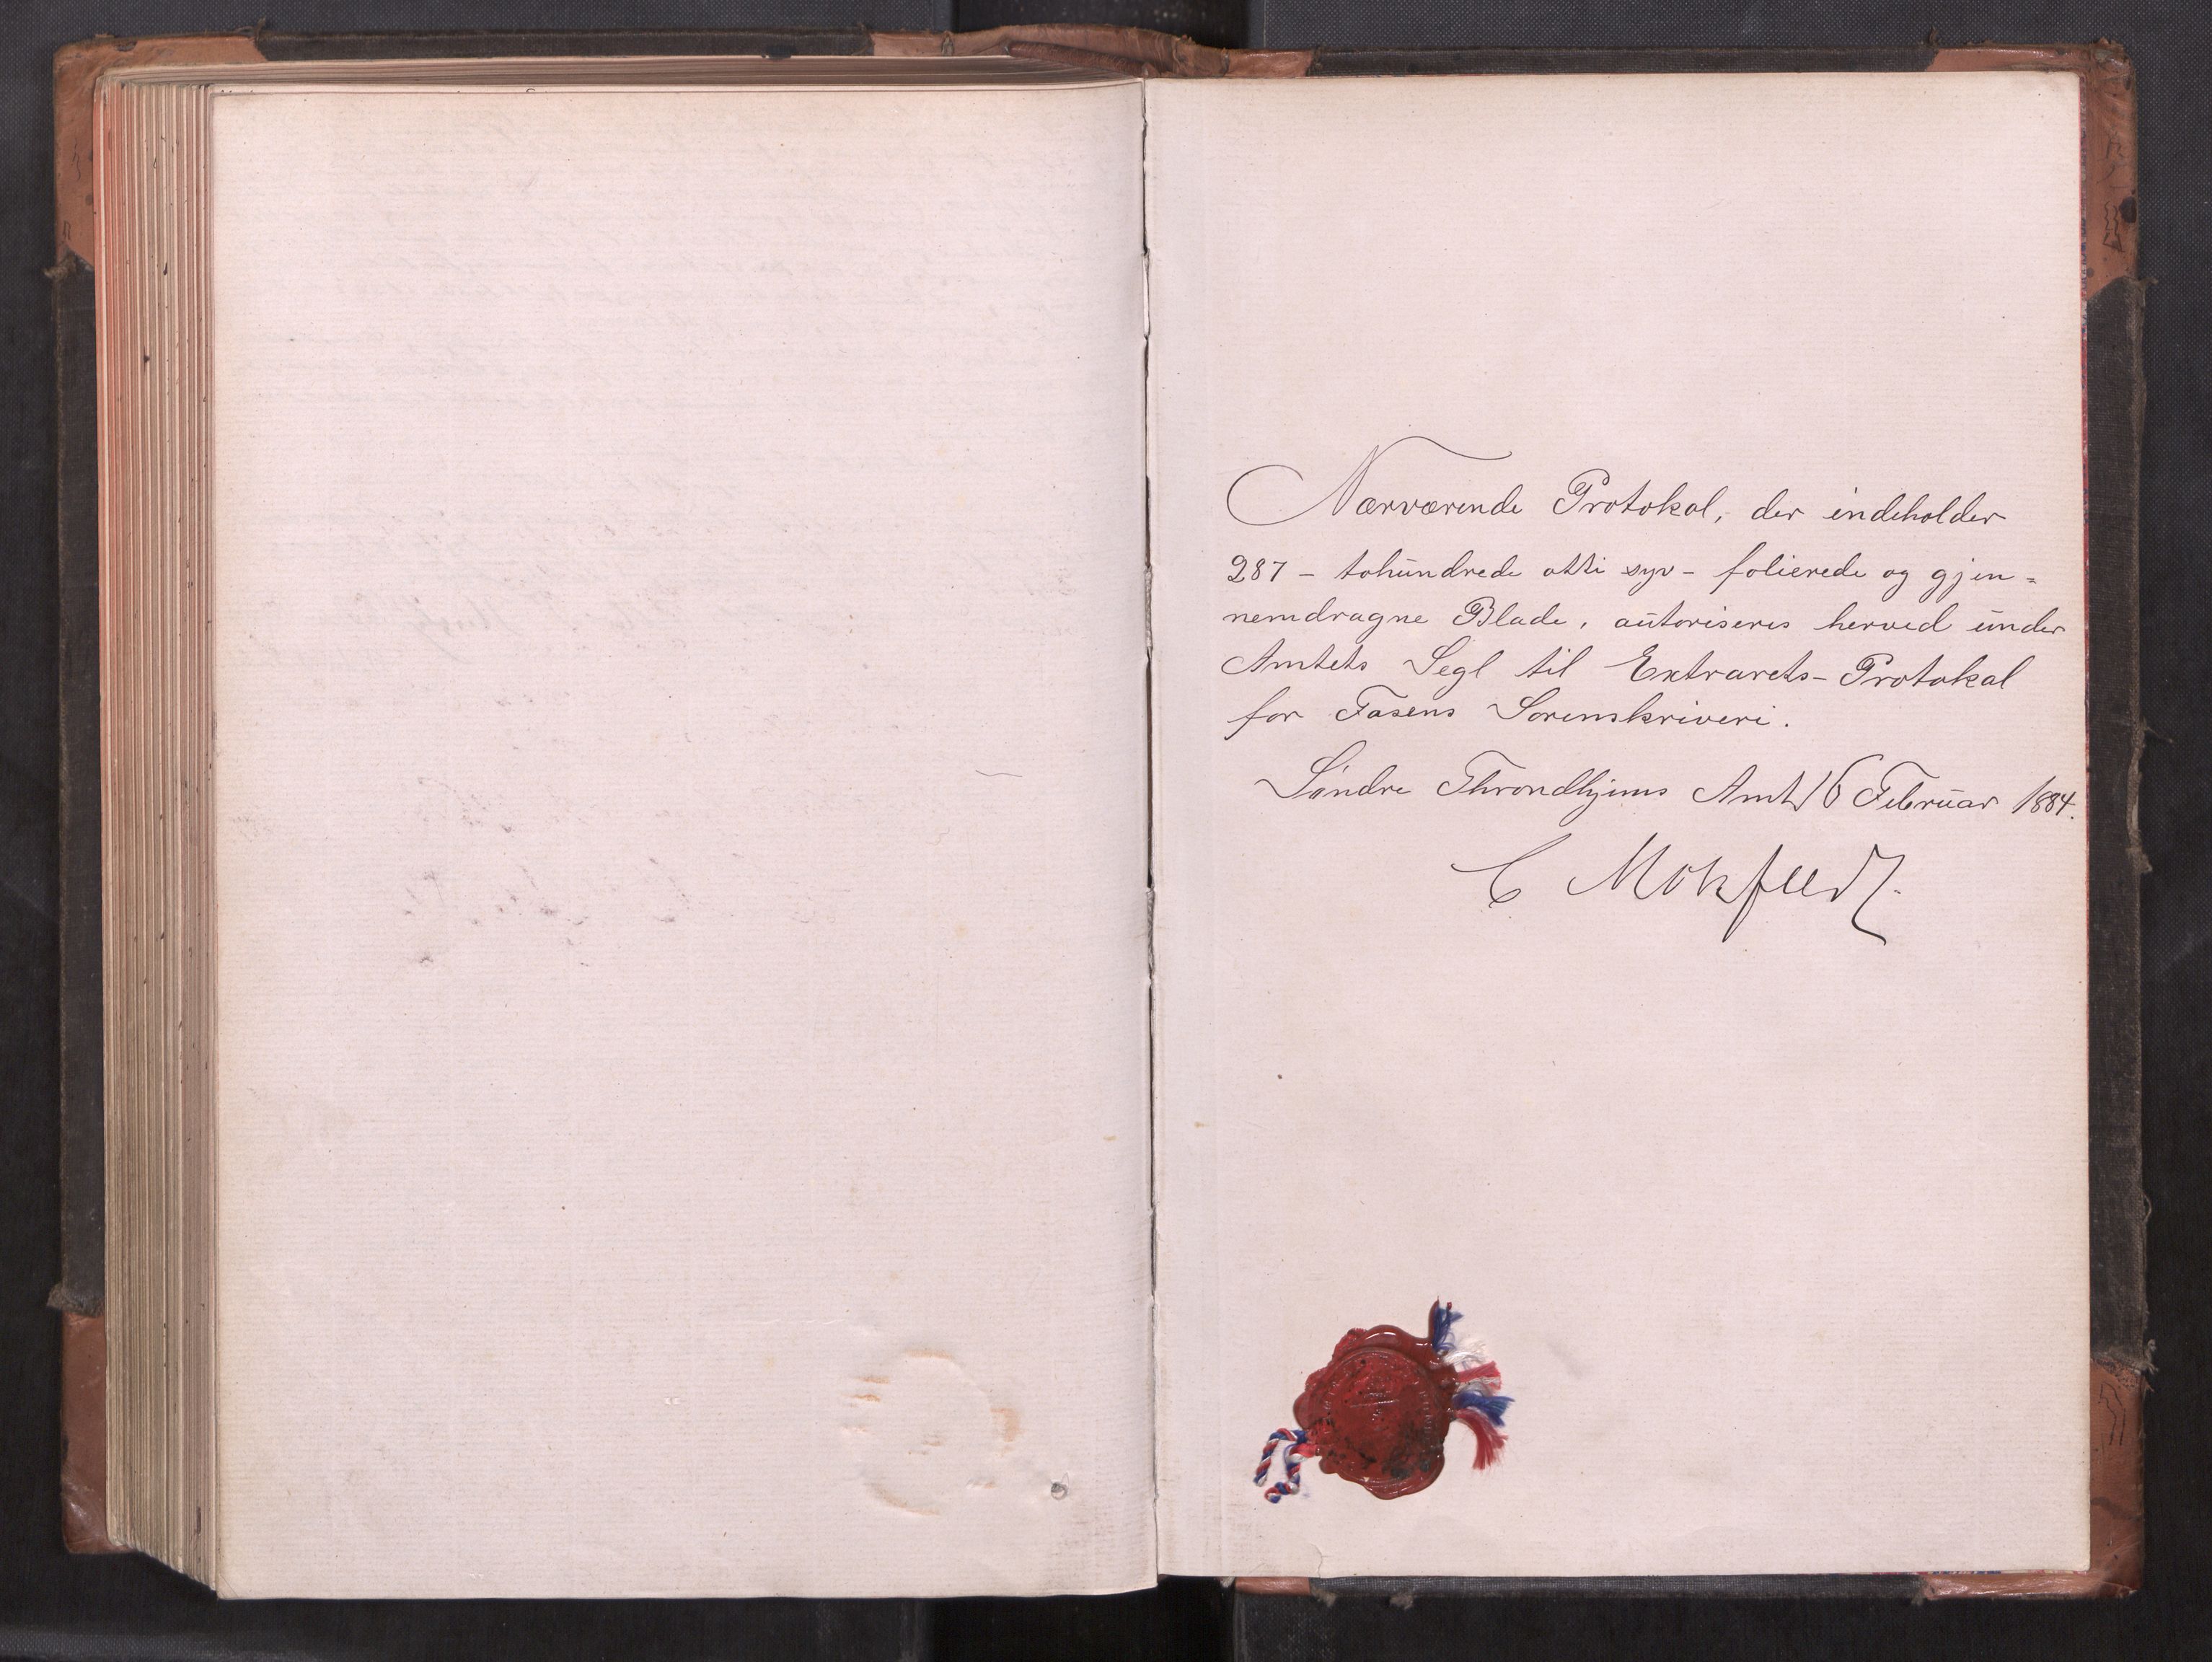 Nærværende Protokol, der indeholder
287 – tohundrede otti syv – folierede og gjen=
nemdragne Blade, autoriseres herved under
Amtets Segl til Extrarets-Protokol
for Fosens Sorenskriveri.
Søndre Throndhjems Amt 16 Februar 1884.
C